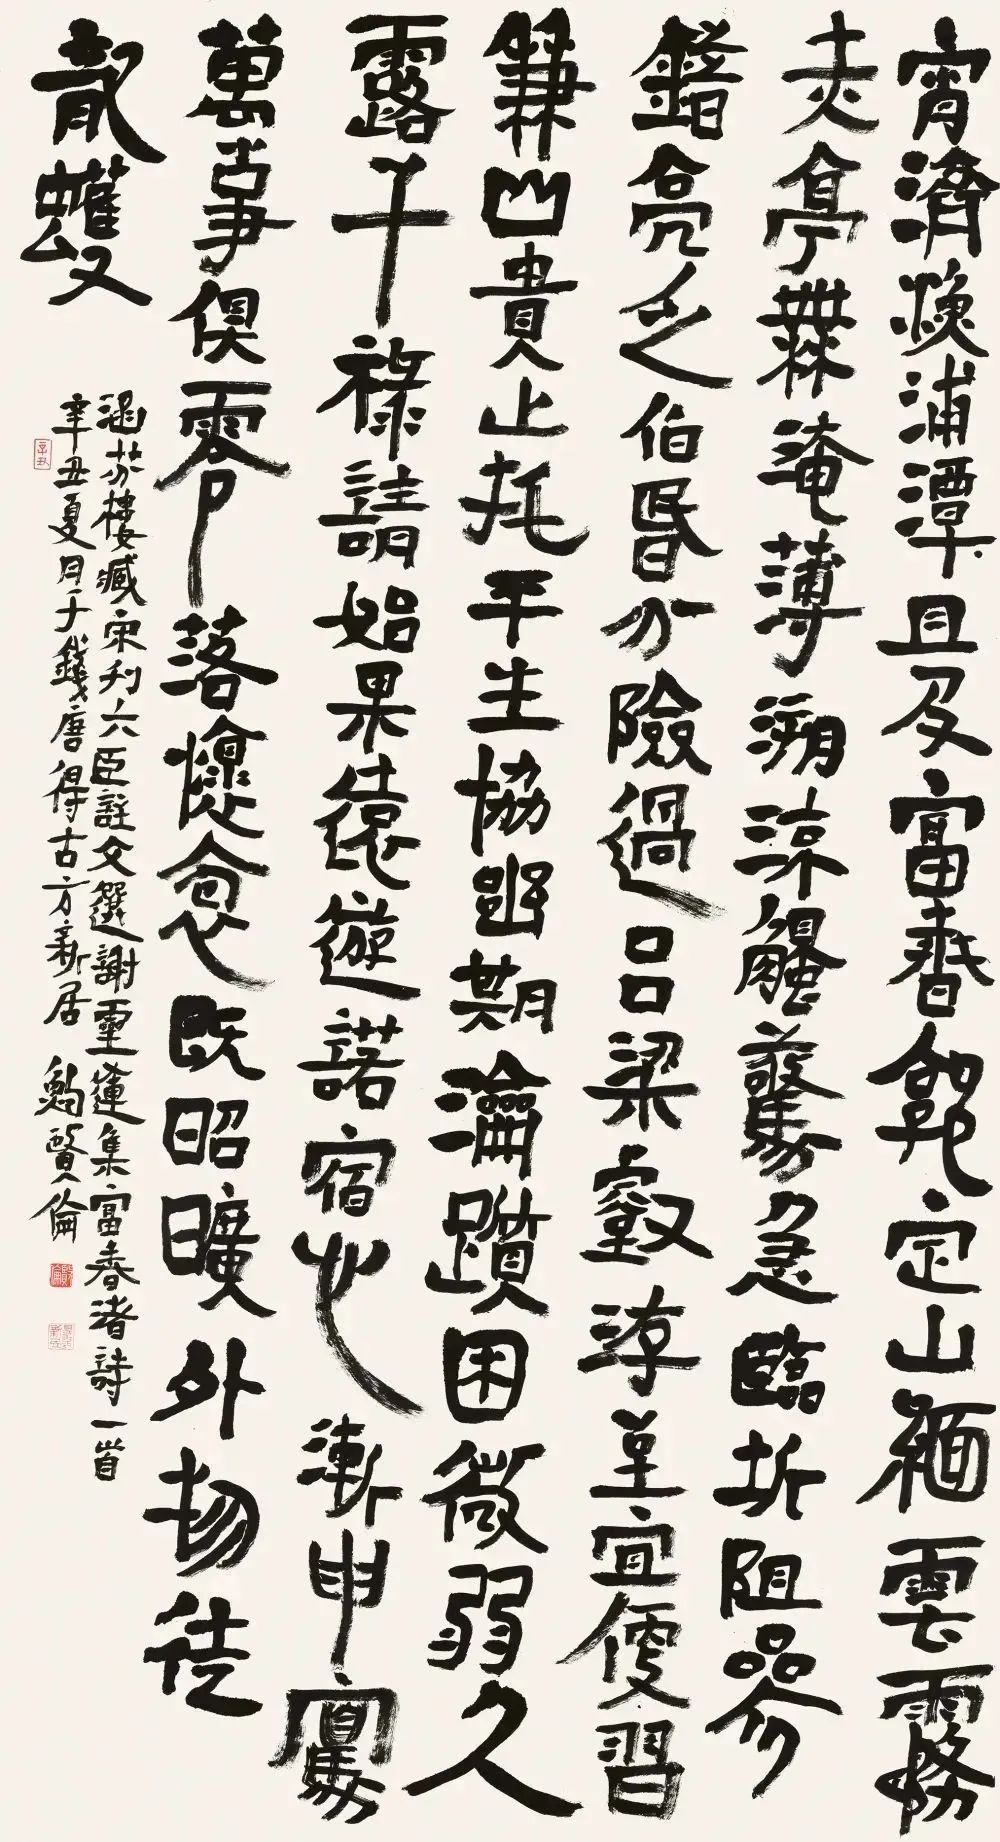 宵濟漁浦潭旦及富春郭定山緬雲霧
赤亭無淹薄溯流觸驚急臨圻阻參
錯亮乏伯昏分險過呂梁壑洊至宜便習
兼山貴止托平生協幽期淪躓困微弱久
露干祿請始果遠遊諾宿心漸申寫
萬事俱零落懷抱既昭曠外物徒
龍蠖
涵芬樓藏宋刊六臣註文選謝靈運集富春渚詩一首
辛丑夏月于錢唐得古方新居 鮑賢倫
辛丑
賢倫